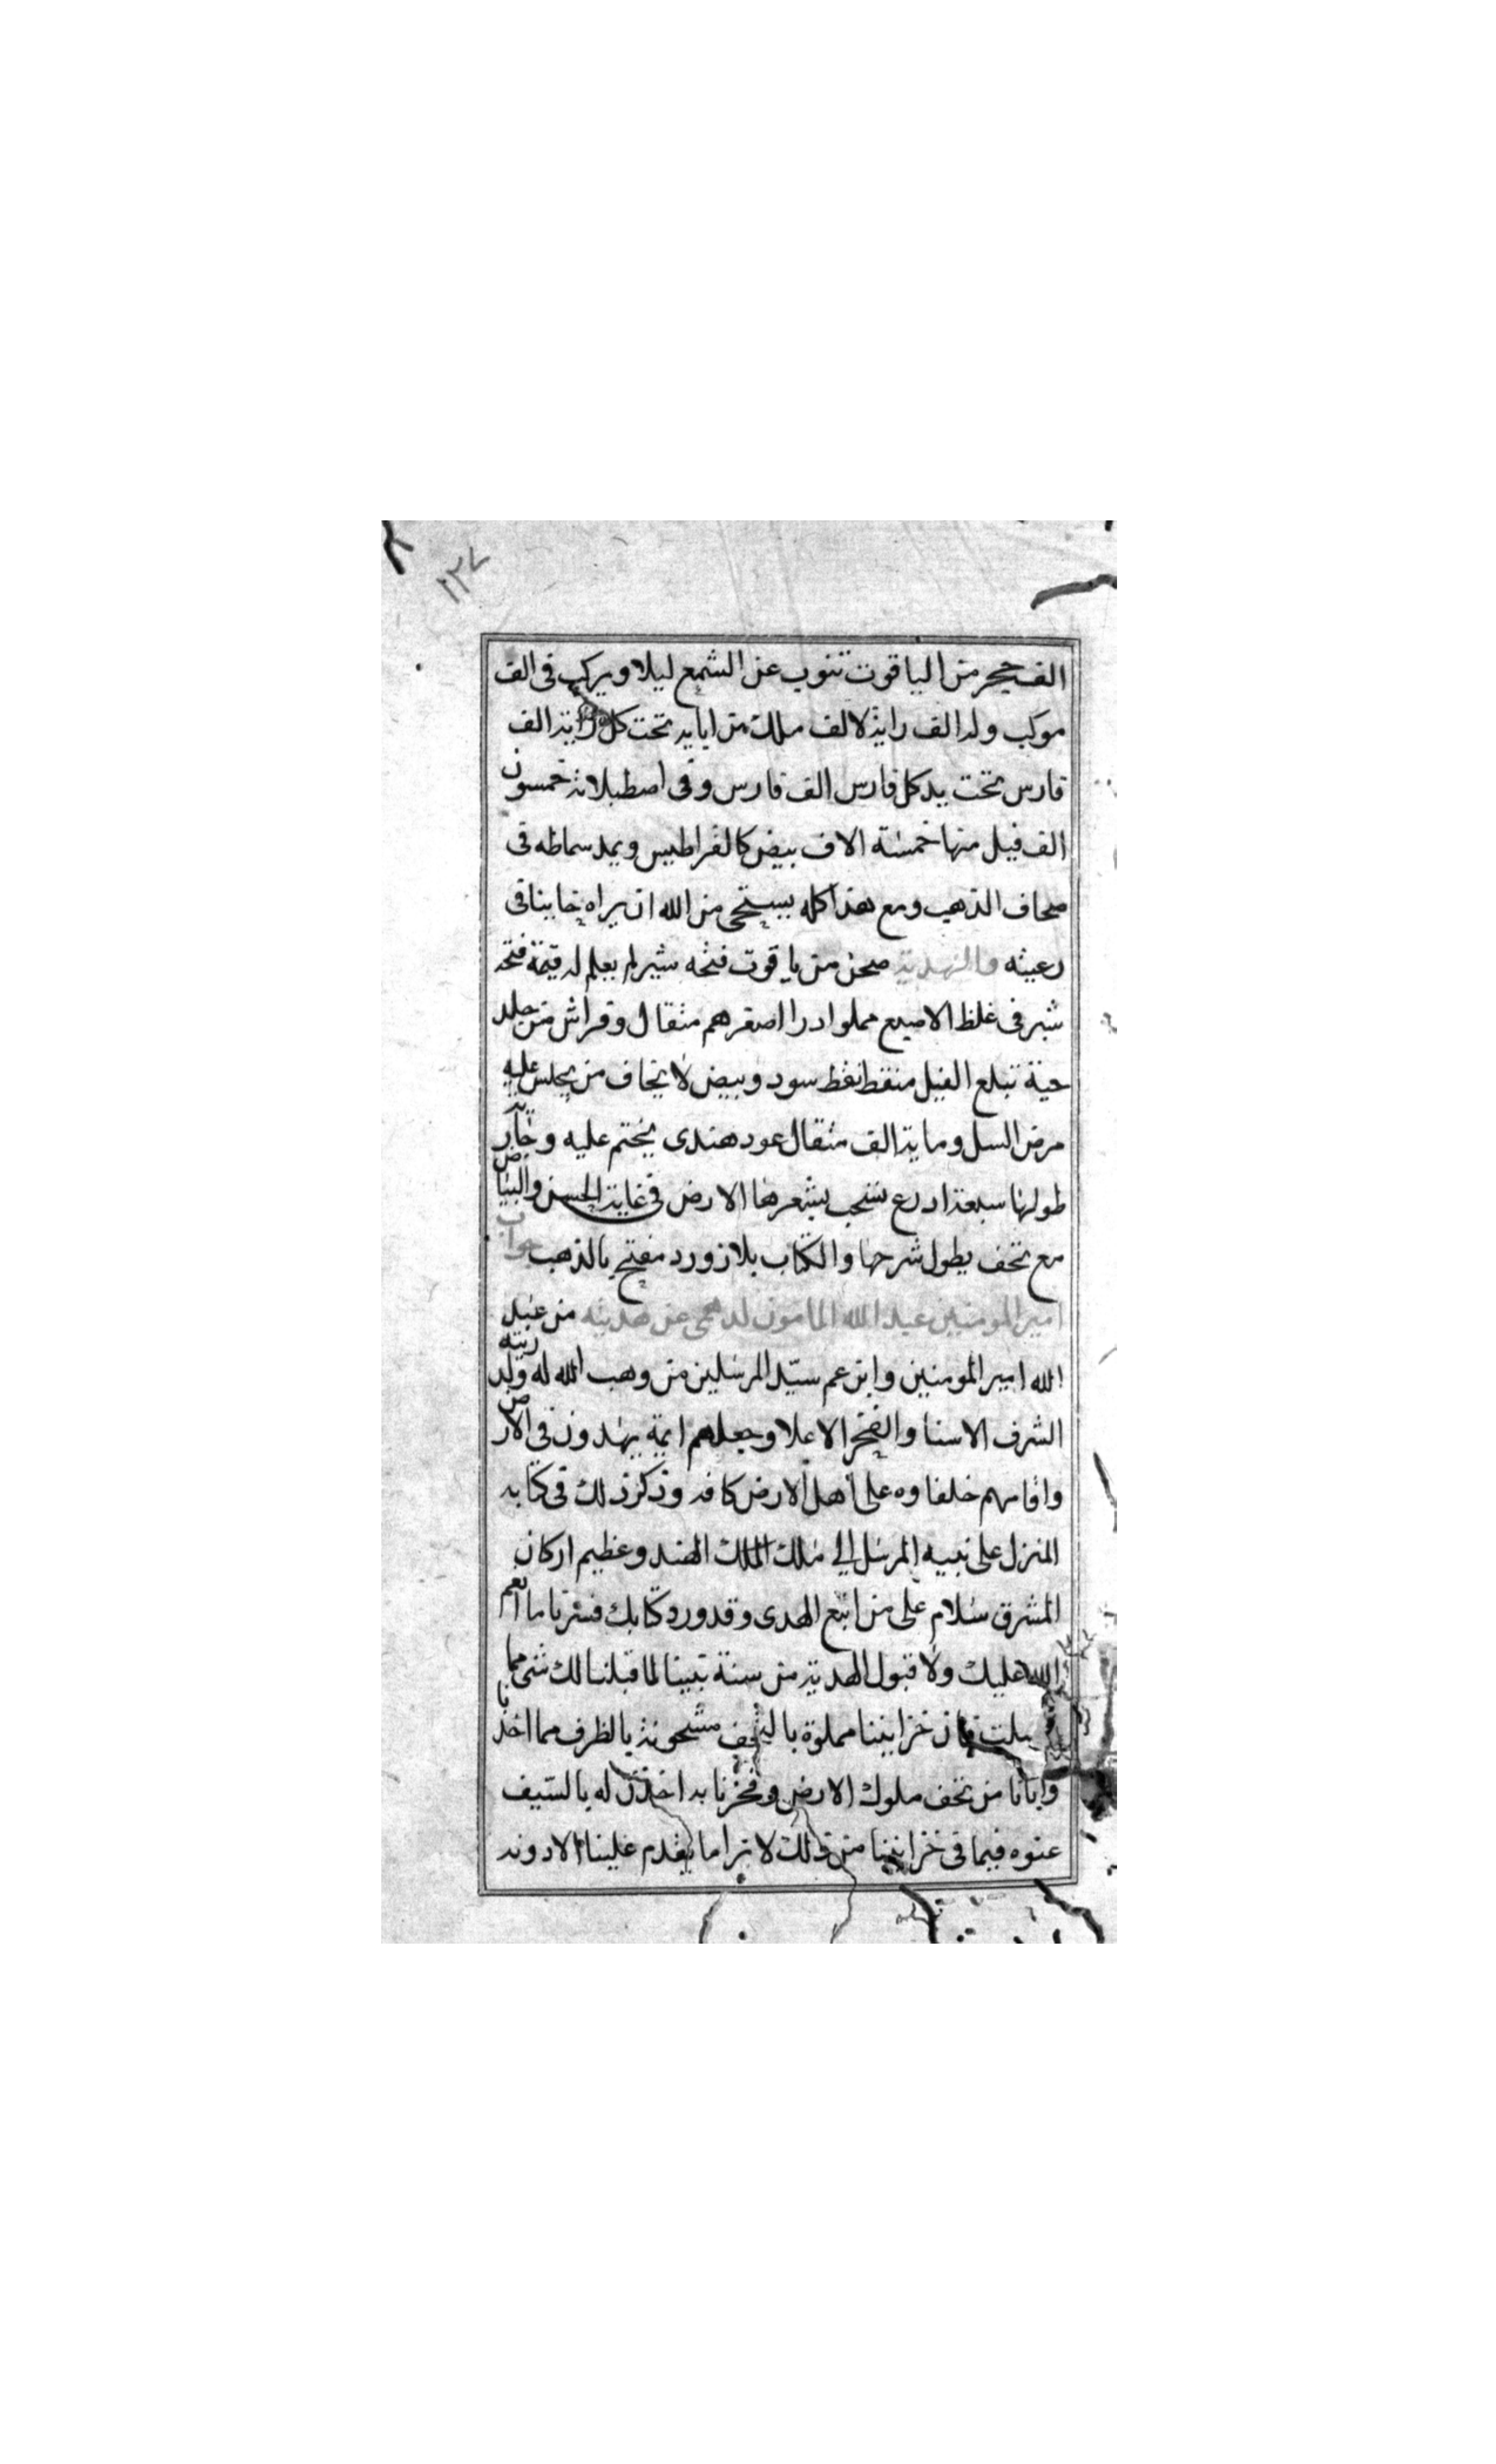 ١٣٧
الف حجر من الياقوت تنوب عن الشمع ليلا ويركب فى الف
موكب وله الف راية لالف ملك من ابايه تحت كل راية الف
فارس تحت يد كل فارس الف فارس وفى اصطبلاته خمسون
الف فيل منها خمسة الاف بيض كالقراطيس ويمد سماطه فى
صحاف الذهب ومع هذا كله يستحى من الله ان يراه خاينا فى
رعيته والهدية صحن من ياقوت فتحه شبر لم يعلم له قيمة فتحه
شبر فى غلظ الاصبع مملوا درا اصغرهم مثقال وفراش من جلد
حية تبلع الفيل منقط نقط سود وبيض لا يخاف من يجلس عليه
مرض السل وماية الف مثقال عود هندى يختم عليه وجارية
طولها سبعة ادرع تسحب بشعرها الارض فى غاية الحسن والبياض
مع تحف يطول شرحها والكتاب بلازورد مفتح بالذهب جواب
امير المومنين عبد الله المامون لدهمى عن هديته من عبد
الله امير المومنين وابن عم سيّد المرسلين من وهب الله له ولذريته
الشرف الاسنا والفخر الاعلا وجعلهم ايمة يهدون فى الارض
واقامهم خلفاوه على أهل الارض كافه وذكر ذلك فى كتابه
المنزل على نبيه المرسل الي ملك الملك الهند وعظيم اركان
المشرق سلام على من اتبع الهدى وقد ورد كتابك فسرنا ما انعم
الله عليك ولا قبول الهدية من سنة نبينا لما قبلنا لك شى مما
فان خزايننا مملوة بالتحف مشحونة بالظرف مما اخذنا
وابانا من تحف ملوك الارض وفخرنا به اخذنا له بالسّيف
عنوه فيما فى خزايننا من ذلك لا ترا ما يقدم علينا الادونه